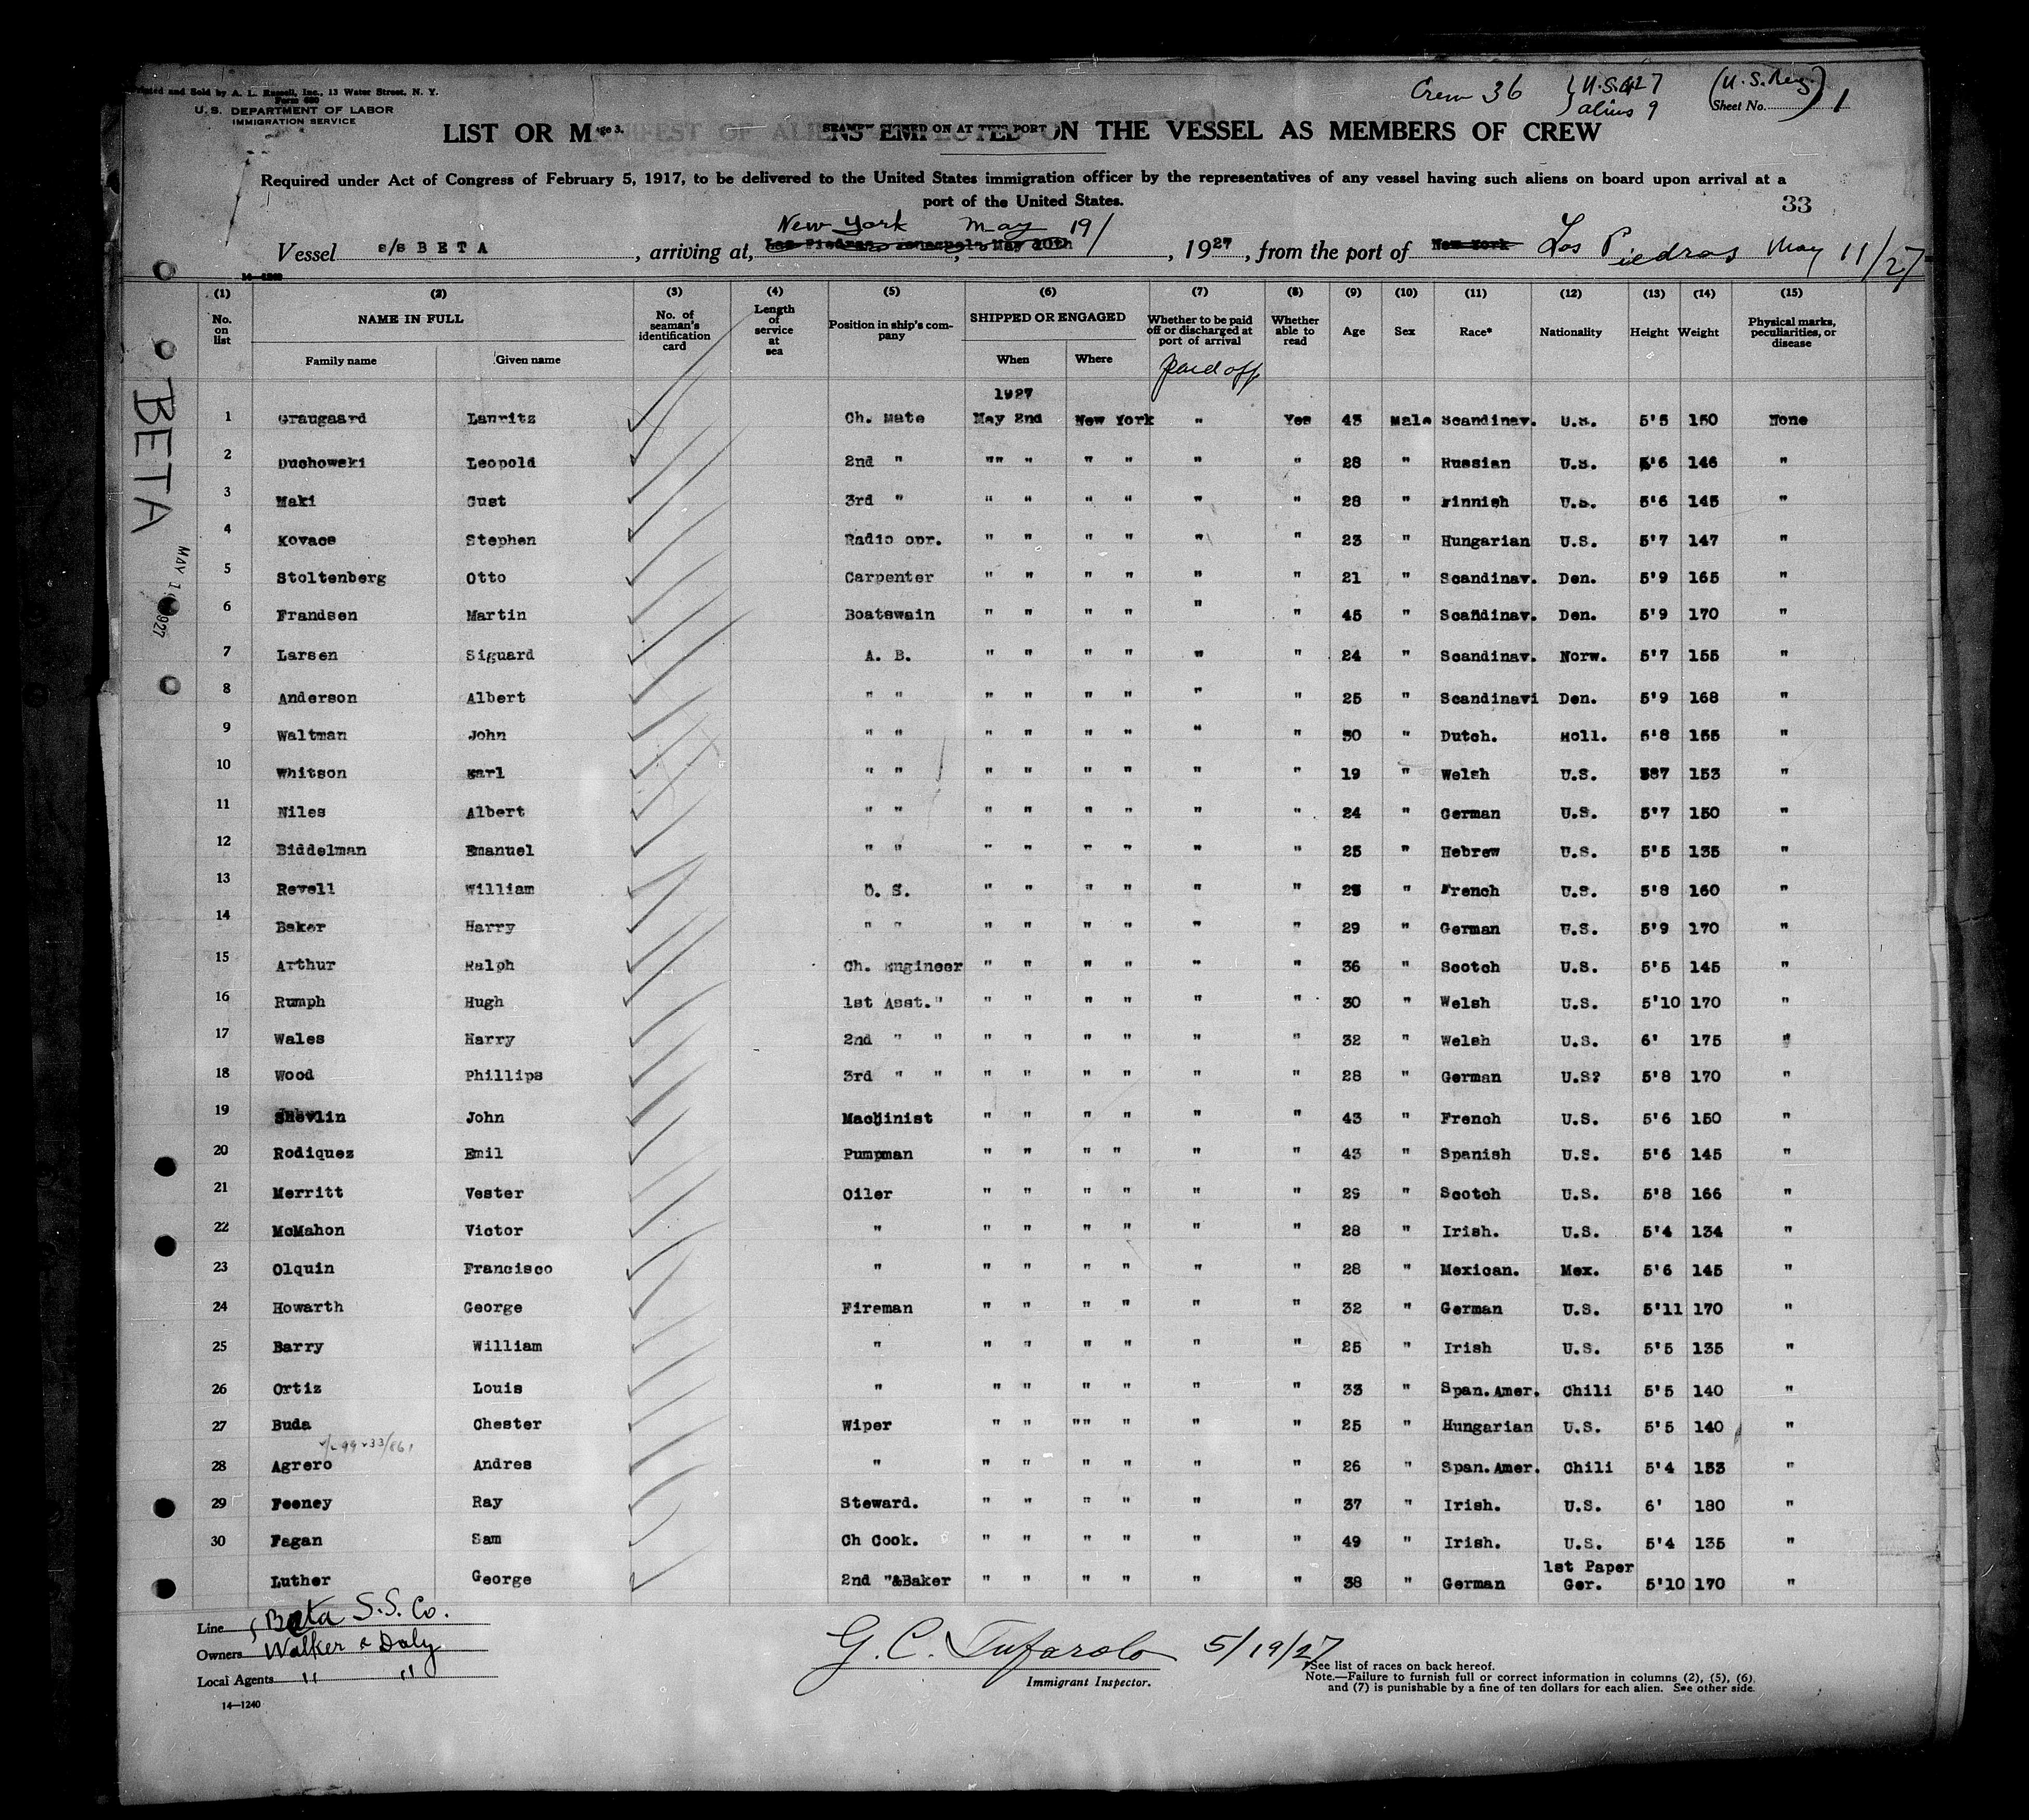 Printed and Sold by A. L. Russell, Inc., 13 Water Street, N. Y.
Form 680
U. S. DEPARTMENT OF LABOR
IMMIGRATION SERVICE
Crew 36 U.S. 27 aliens 9 (U.S. Reg.)
Sheet No. 1
LIST OR MANIFEST OF ALIENS EMPLOYED ON THE VESSEL AS MEMBERS OF CREW
Required under Act of Congress of February 5, 1917, to be delivered to the United States immigration officer by the representatives of any vessel having such aliens on board upon arrival at a
port of the United States.
33
New York May 19/
Vessel s/s BETA, arriving at, , 1927, from the port of New York Las Piedras May 11/27
14-1240
(1) (2) (3) (4) (5) (6) (7) (8) (9) (10) (11) (12) (13) (14) (15)
No. on list NAME IN FULL No. of seaman's identification card Length of service at sea Position in ship's company SHIPPED OR ENGAGED Whether to be paid off or discharged at port of arrival Whether able to read Age Sex Race* Nationality Height Weight Physical marks, peculiarities, or disease
Family name Given name When Where
Paid off
1927
1 Graugaard Lauritz Ch. Mate May 2nd New York " Yes 43 Male Scandinav. U.S. 5'5 150 None
2 Duchowski Leopold 2nd " "" " " " " " 28 " Russian U.S. 5'6 146 "
3 Maki Gust 3rd " " " " " " " 28 " Finnish U.S. 5'6 145 "
4 Kovacs Stephen Radio opr. " " " " " " 23 " Hungarian U.S. 5'7 147 "
5 Stoltenberg Otto Carpenter " " " " " " 21 " Scandinav. Den. 5'9 165 "
6 Frandsen Martin Boatswain " " " " " " 45 " Scandinav. Den. 5'9 170 "
7 Larsen Siguard A. B. " " " " " " 24 " Scandinav. Norw. 5'7 155 "
8 Anderson Albert " " " " " " " " 25 " Scandinavi Den. 5'9 168 "
9 Waltman John " " " " " " " " 30 " Dutch. Holl. 5'8 155 "
10 Whitson Earl " " " " " " " " 19 " Welsh U.S. 587 153 "
11 Niles Albert " " " " " " " " 24 " German U.S. 5'7 150 "
12 Biddelman Emanuel " " " " " " " " 25 " Hebrew U.S. 5'5 135 "
13 Revell William O. S. " " " " " " " French U.S. 5'8 160 "
14 Baker Harry " " " " " " " " 29 " German U.S. 5'9 170 "
15 Arthur Ralph Ch. Engineer " " " " " " 36 " Scotch U.S. 5'5 145 "
16 Rumph Hugh 1st Asst." " " " " " " 30 " Welsh U.S. 5'10 170 "
17 Wales Harry 2nd " " " " " " " " 32 " Welsh U.S. 6' 175 "
18 Wood Phillips 3rd " " " " " " " " 28 " German U.S? 5'8 170 "
19 Shevlin John Machinist " " " " " " 43 " French U.S. 5'6 150 "
20 Rodiquez Emil Pumpman " " " " " " 43 " Spanish U.S. 5'6 145 "
21 Merritt Vester Oiler " " " " " " 29 " Scotch U.S. 5'8 166 "
22 McMahon Victor " " " " " " " 28 " Irish. U.S. 5'4 134 "
23 Olquin Francisco " " " " " " " 28 " Mexican. Mex. 5'6 145 "
24 Howarth George Fireman " " " " " " 32 " German U.S. 5'11 170 "
25 Barry William " " " " " " " 25 " Irish U.S. 5'5 135 "
26 Ortiz Louis " " " " " " " 33 " Span.Amer. Chili 5'5 140 "
27 Buda Chester Wiper " " "" " " " 25 " Hungarian U.S. 5'5 140 "
28 Agrero Andres " " " " " " " 26 " Span.Amer. Chili 5'4 153 "
29 Feeney Ray Steward. " " " " " " 37 " Irish. U.S. 6' 180 "
30 Fagan Sam Ch Cook. " " " " " " 49 " Irish. U.S. 5'4 135 "
1st Paper
Luther George 2nd "&Baker " " " " " " 38 " German Ger. 5'10 170 "
BETA
MAY 1927
Line Beta S.S. Co.
Owners Walker & Daly
Local Agents " "
14-1240
G. C. Tufarolo 5/19/27
Immigrant Inspector.
*See list of races on back hereof.
Note.—Failure to furnish full or correct information in columns (2), (5), (6),
and (7) is punishable by a fine of ten dollars for each alien. See other side.